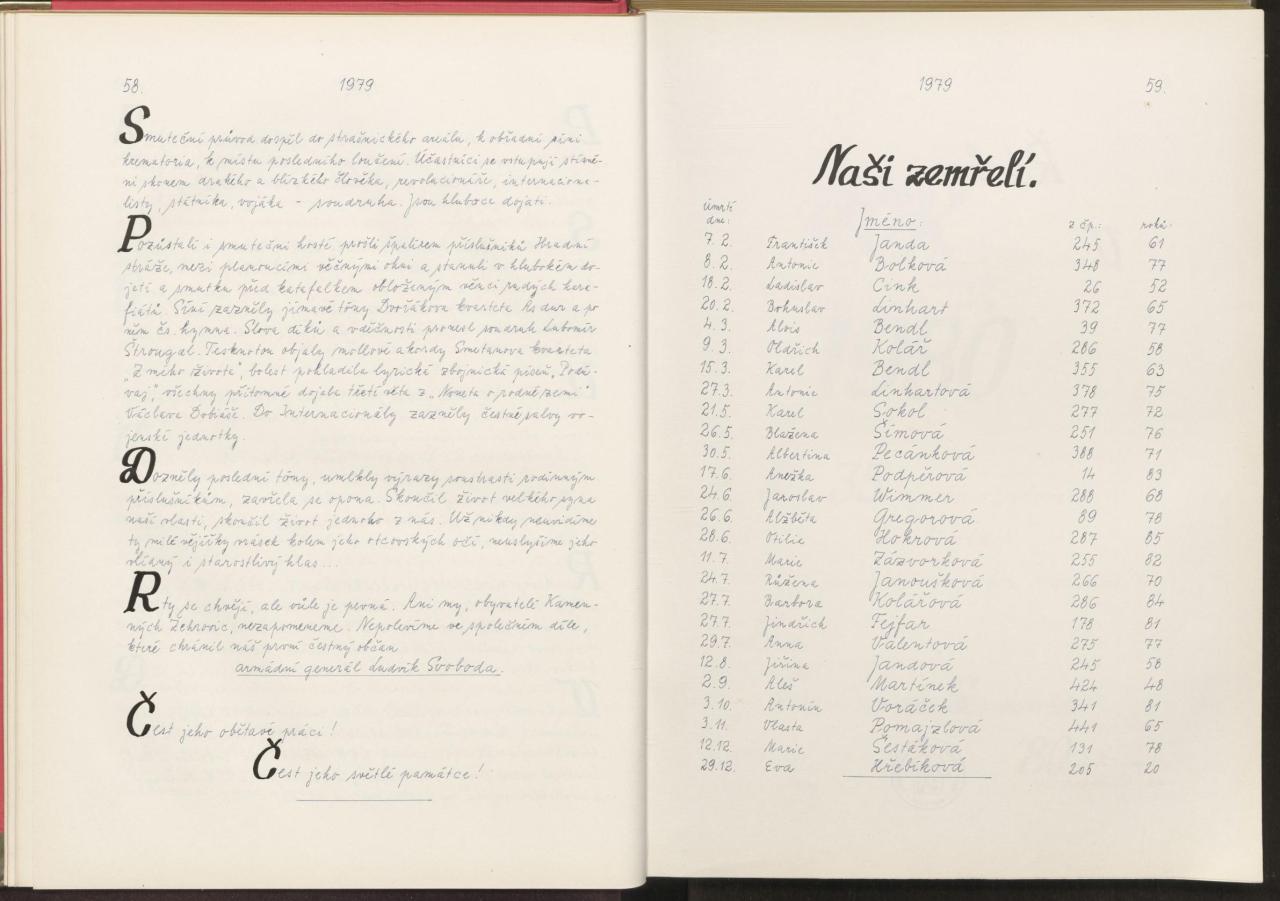 58.
1979
Smuteční průvod dospěl do strašnického areálu, k obřadní síni
krematoria, k místu posledního loučení. Účastníci se vstupují stísně-
ni skonem drahého a blízkého člověka, revolucionáře, internaciona-
listy, státníka, vojáka - soudruha. Jsou hluboce dojati.
Pozůstalí i smuteční hosté prošli špalírem příslušníků Hradní
stráže, mezi planoucími věčnými ohni a stanuli v hlubokém do-
jetí a smutku před katafalkem obloženým věnci rudých kara-
fiátů. Síní zazněly jímavé tóny Dvořákova kvarteta As dur a po
něm čs. hymna. Slova díků a vděčnosti pronesl soudruh Lubomír
Štrougal. Tesknotou objaly mollové akordy Smetanova kvarteta
"Z mého života", bolest pohladila lyrická zbojnická píseň "Podě-
vaj", všechny přítomné dojala třetí věta z "Noneta o rodné zemi"
Václava Dobiáše. Do Internacionály zazněly čestné salvy vo-
jenské jednotky.
Dozněly poslední tóny, umlkly výrazy soustrasti rodinným
příslušníkům, zavřela se opona. Skončil život velkého syna
naší vlasti, skončil život jednoho z nás. Už nikdy neuvidíme
ty milé vějířky vrásek kolem jeho otcovských očí, neuslyšíme jeho
vlídný i starostlivý hlas...
Rty se chvějí, ale vůle je pevná. Ani my, obyvatelé Kamen-
ných Žehrovic, nezapomeneme. Nepolevíme ve společném díle,
které chránil náš první čestný občan
armádní generál Ludvík Svoboda.
Čest jeho obětavé práci!
Čest jeho světlé památce!
1979
59.
Naši zemřelí.
Úmrtí
dne: Jméno: z čp.: roků:
7.2. František Janda 245 61
8.2. Antonie Bolková 348 77
18.2. Ladislav Cink 26 52
20.2. Bohuslav Linhart 372 65
4.3. Alois Bendl 39 77
9.3. Oldřich Kolář 286 58
15.3. Karel Bendl 355 63
27.3. Antonie Linhartová 378 75
21.5. Karel Sokol 277 72
26.5. Blažena Šímová 251 76
30.5. Albertina Pecánková 388 71
17.6. Anežka Podpěrová 14 83
24.6. Jaroslav Wimmer 288 68
26.6. Alžběta Gregorová 89 78
28.6. Otilie Hokrová 287 85
11.7. Marie Zázvorková 255 82
24.7. Růžena Janoušková 266 70
27.7. Barbora Kolářová 286 84
27.7. Jindřich Fejfar 178 81
29.7. Anna Valentová 275 77
12.8. Jiřina Jandová 245 58
2.9. Aleš Martínek 424 48
3.10. Antonín Voráček 341 81
3.11. Vlasta Pomajzlová 441 65
12.12. Marie Šestáková 131 78
29.12. Eva Hřebíková 205 20